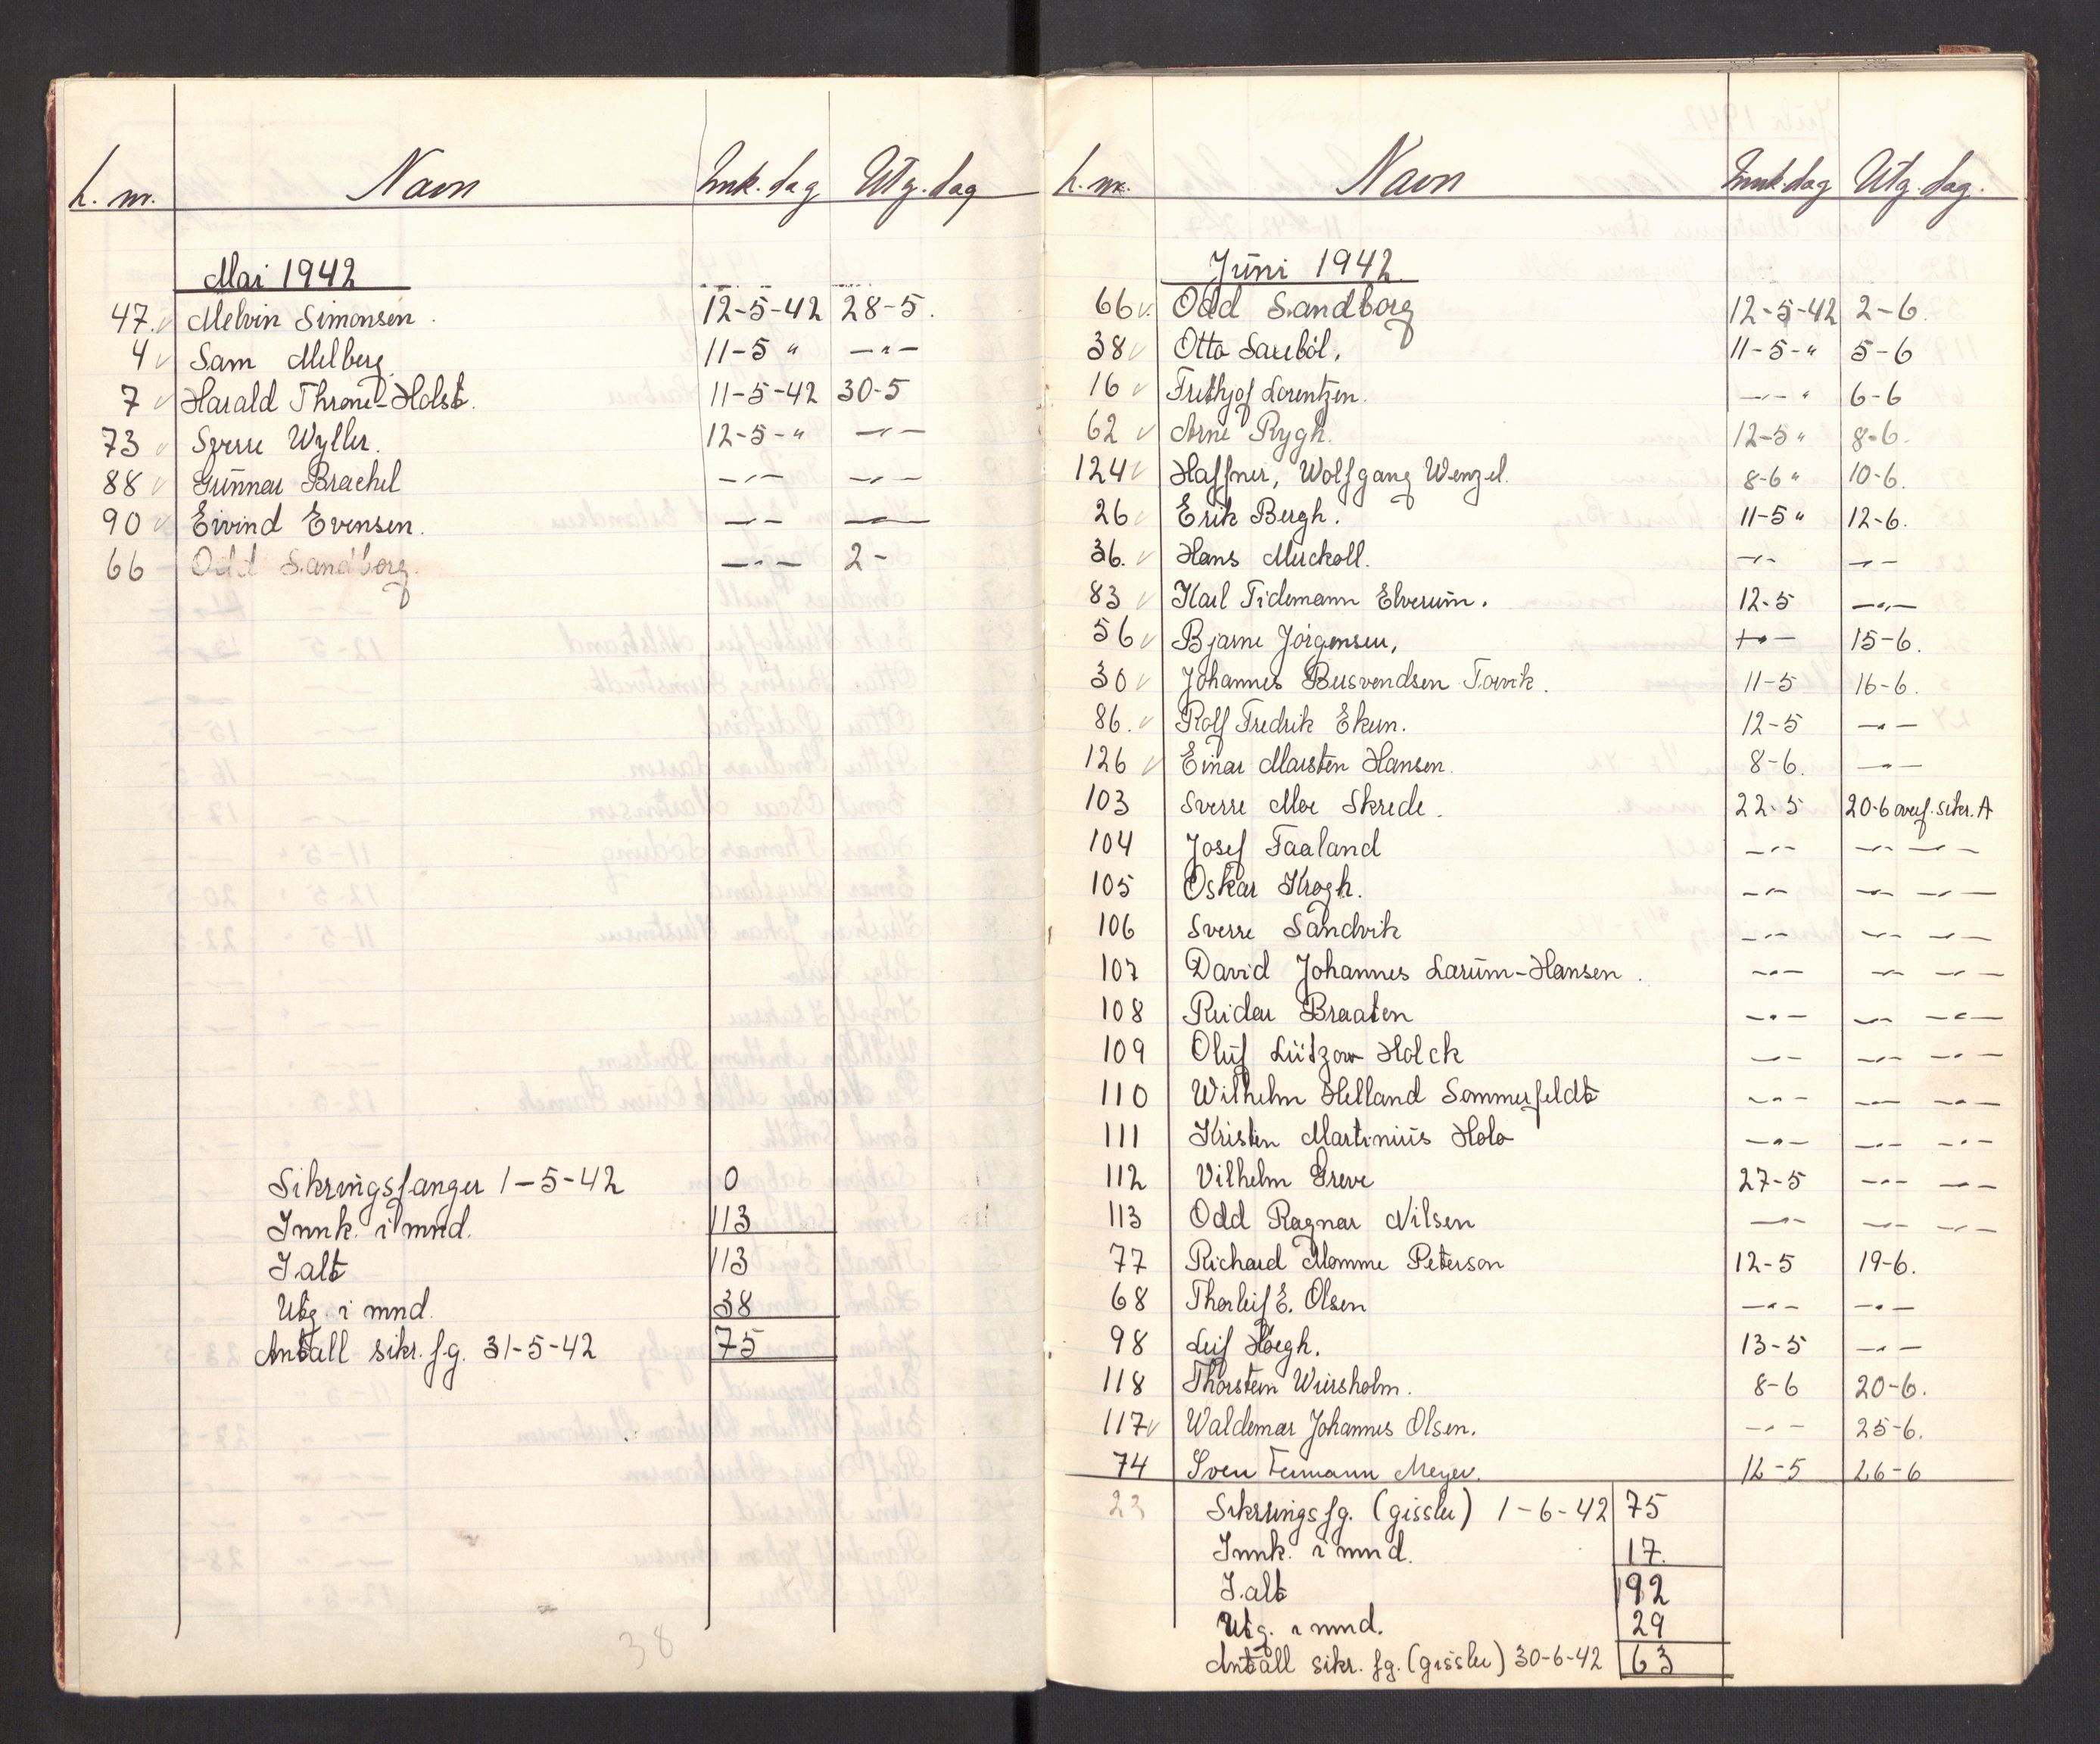 L. nr. Navn Innk. dag Utg. dag
Mai 1942
47. Melvin Simonsen. 12-5-42 28-5.
4 Sam Melberg. 11-5 " —"—
7 Harald Throne-Holst. 11-5-42 30-5
73 Sverre Wyller. 12-5-" —"—
88 Gunnar Brachel —"— —"—
90 Eivind Evensen. —"— —"—
66 Odd Sandborg. —"— 2-
Sikringsfanger 1-5-42 0
Innk. i mnd. 113
I alt 113
Utg. i mnd. 38
Antall sikr. fg. 31-5-42 75
38
L. nr. Navn Innk. dag Utg. dag.
Juni 1942.
66 Odd Sandborg 12-5-42 2-6.
38 Otto Sareböl. 11-5-" 5-6
16 Frithjof Lorentzen. —"— " 6-6
62 Arne Rygh. 12-5 " 8-6.
124 Haffner, Wolfgang Wenzel. 8-6 " 10-6.
26 Erik Bergh. 11-5 " 12-6.
36. Hans Merckoll. —"— —"—
83 Karl Tidemann Elverum. 12-5 —"—
56 Bjarne Jörgensen, —"— 15-6.
30 Johannes Busvendsen Torvik. 11-5 16-6.
86. Rolf Fredrik Ekern. 12-5 —"—
126 Einar Marsten Hansen. 8-6. —"—
103 Sverre Moe Skrede. 22-5 20-6 overf. sikr. A
104 Josef Faaland —"— —"— —"—
105 Oskar Krogh. —"— —"— —"—
106 Sverre Sandvik —"— —"— —"—
107 David Johannes Larum-Hansen. —"— —"— —"—
108 Reidar Braaten —"— —"— —"—
109 Oluf Lützow Holck —"— —"— —"—
110 Wilhelm Helland Sommerfeldt —"— —"— —"—
111 Kristen Martinius Holo —"— —"— —"—
112 Vilhelm Greve 27-5 —"— —"—
113 Odd Ragnar Nilsen —"— —"— —"—
77 Richard Momme Peterson 12-5 19-6.
68 Thorleif E. Olsen —"— —"—
98 Leif Höegh. 13-5 —"—
118 Thorstein Wiersholm. 8-6 20-6.
117 Waldemar Johannes Olsen. —"— 25-6.
74 Sven Meyer. 12-5 26-6
23 Sikringsfg. (gissler) 1-6-42 75
Innk. i mnd. 17.
I alt 92
Utg. i mnd. 29
Antall sikr. fg. (gissler) 30-6-42 63